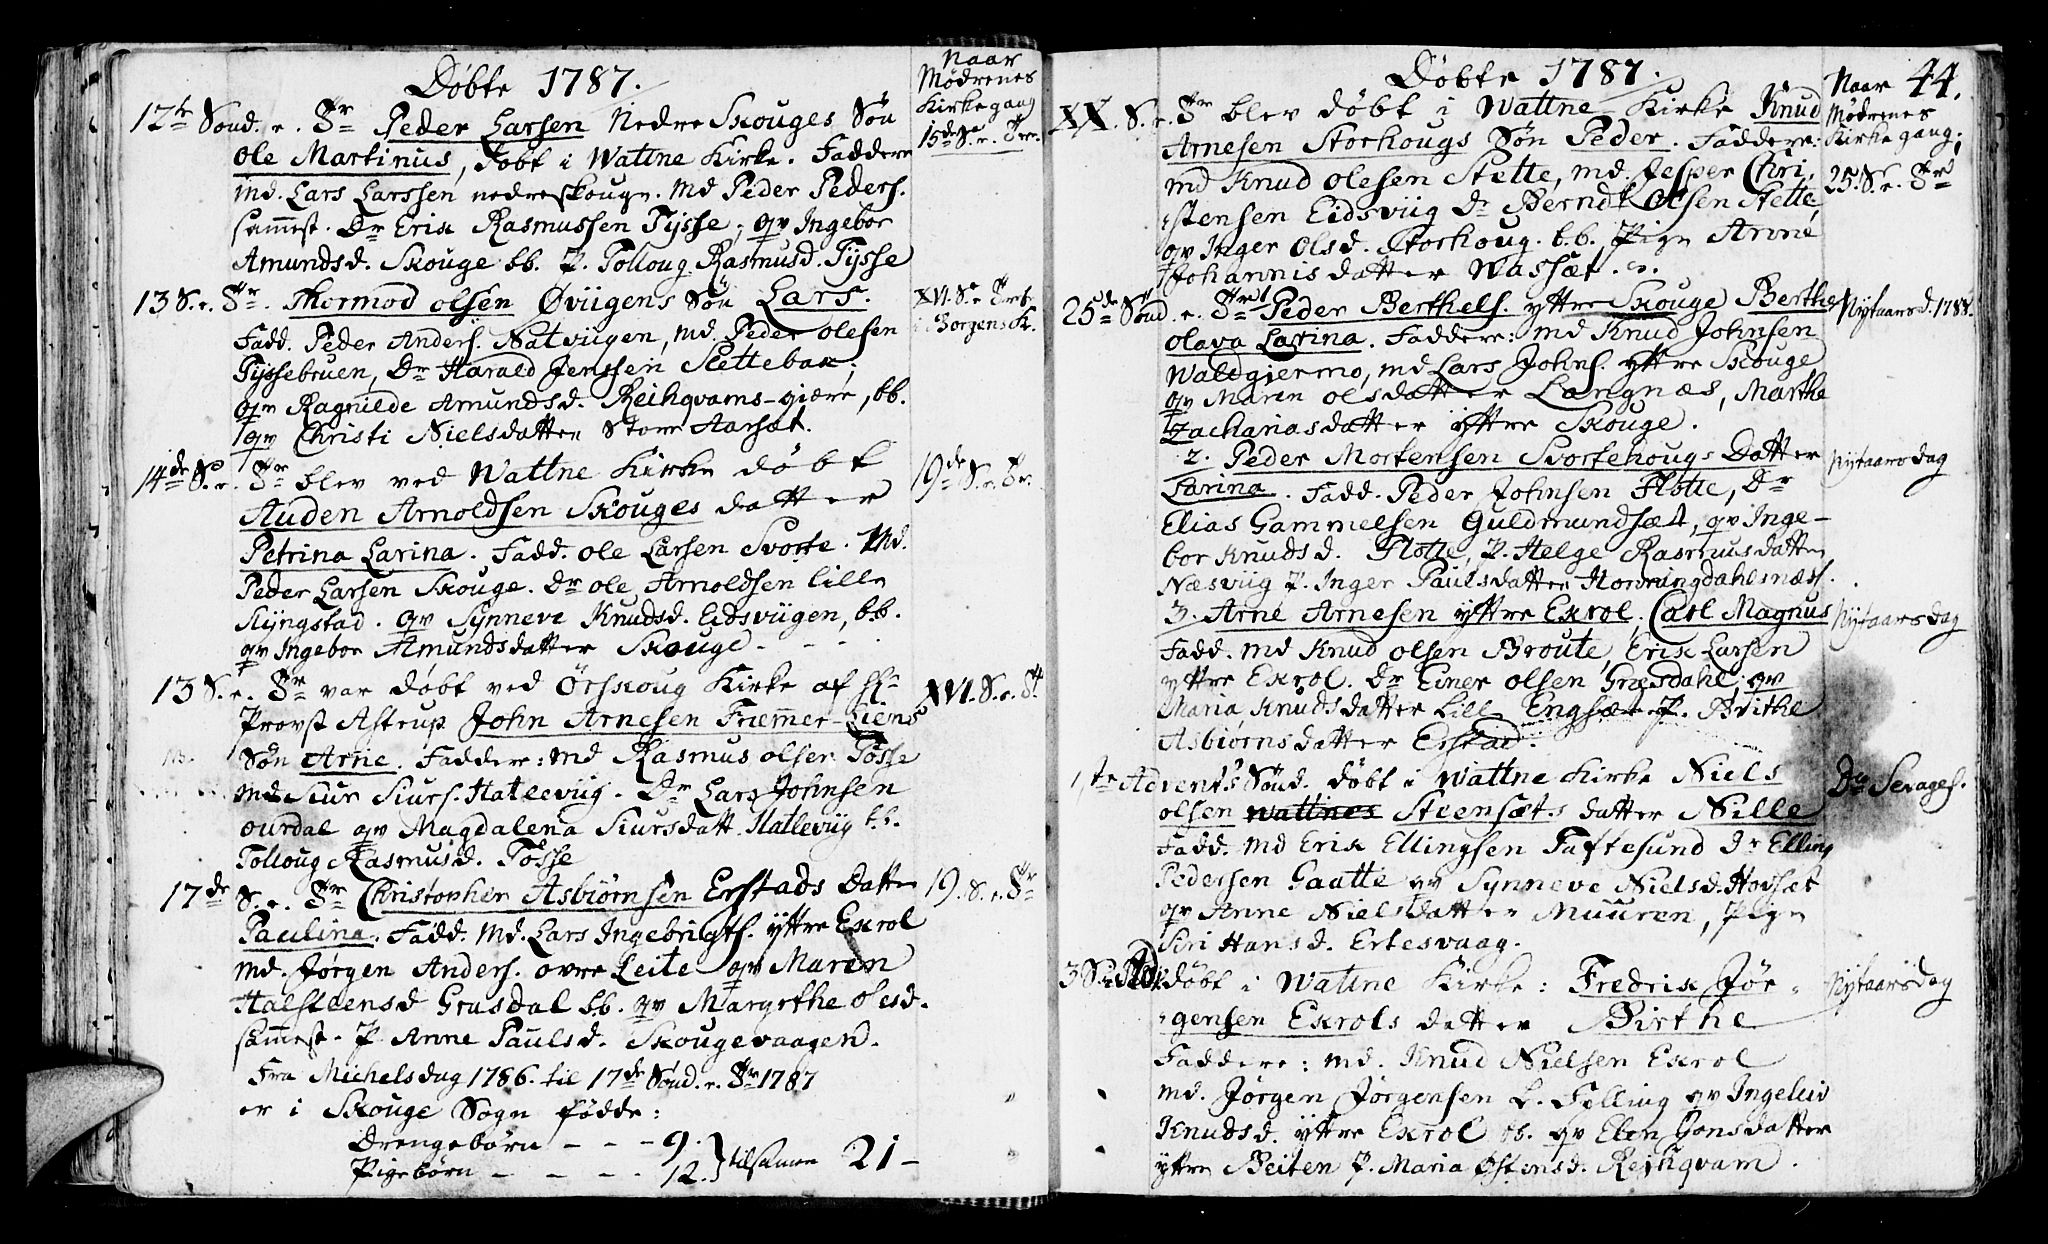 Døbte 1787.
Naar
Mødrenes
Kirkegang
12te Sønd. e. Tr Peder Larsen Nedre Skouges Søn
15de S. e. Tr.
Ole Martinus, døbt i Wattne Kirke. Faddere
md. Lars Larssen nedreskouge. Md Peder Peders.
sammest. Dr Erik Rasmussen Tysse, qv Ingebor
Amundsd. Skouge bb. P. Tolloug Rasmusd. Tysse
13 S. e. Tr. Thormod olsen Øviigens Søn Lars.
XVI. S. e Tr b.
i Borgens K.
Fadd. Peder Anders. Natviigen, md. Peder olesen
Tyssebruen, Dr Harald Jenssen Slettebak,
qv Ragnilde Amundsd. Reihqvams-giære, bb.
qv Christi Nielsdatter Store Aarsæt.
14de S. e. Tr blev ved Wattne Kirke døbt
19de S. e. Tr.
Auden Arnoldsen Skouges datter
Petrina Larina. Fadd. ole Larsen Svorte. Md.
Peder Larsen Skouge. Dr ole Arnoldsen lille
Slyngstad. qv Synneve Knudsd. Eidsviigen, b.b.
qv Ingebor Amundsdatter Skouge - - -
13 S. e. Tr var døbt ved Örskoug Kirke af Hr
XVI. S. e. Tr
Provst Astrup John Arnesen Fremmer-Liens
Søn Arne. Faddere: md Rasmus olsen Tösse
md Siur Siurs. Hatlevиg. Dr Lars Johnsen
ourdal qv Magdalena Siursdatt. Hatleviig b.b.
Tolloug Rasmusd. Tösse
17de S. e. Tr Christopher Asbiørnsen Erstads Datter
19. S. e. Tr
Paulina. Fadd. Md. Lars Ingebrigts. yttre Exrol
md. Jørgen Anders. ovre Leite qv Maren
Halsteensd Grasdal bb. qv Margrethe olesd.
sammest. P Anne Paulsd. Skougevaagen.
Fra Michelsdag 1786. til 17de Sønd. e. Tr 1787
er i Skouge Sogn fødde:
Drengebørn - - - 9.
Pigebørn - - - - 12. } tilsamen 21 -
Døbte 1787.
Naar 44.
Mødrenes
Kirkegang.
XX. S. e. Tr blev døbt i Wattne Kirke Knud
Arnesen Storhougs Søn Peder. Faddere:
25. S. e. Tr
md Knud olesen Stette, md. Jesper Chri-
stensen Eidsviig Dr Berndt Olsen Stette,
qv Inger Olsd. Storhoug. b.b. Pige Anne
Johannisdatter Wassæt.
25de Sønd. e. Tr 1 Peder Berthels. yttre Skouge Berthe
Nytaarsd. 1788.
olava Larina. Faddere: md Knud Johnsen
Waldgiermo, md Lars Johns. yttre Skouge
qv Maren olsdatter Langnæs, Marthe
Zachariasdatter yttre Skouge.
2. Peder Mortensen Svortehougs Datter
Nytaarsdag
Larina. Fadd. Peder Johnsen Flotte, Dr
Elias Gammelsen Guldmundsæt, qv Inge-
bor Knudsd. Flotte, P. Helge Rasmusdatter
Næsviig P. Inger Paulsdatter Horningdahlsnæss.
3. Arne Arnesen yttre Exrol. Carl Magnus
Nytaarsdag
Fadd. md Knud olsen Broute, Erik Larsen
yttre Exrol. Dr Einer olsen Græsdahl, qv
Maria Knudsdatter Lill Engsæt P. Brithe
Asbiørnsdatter Erstad.
1ste Advents Sønd. døbt i Wattne Kirke Niels
Do Sexages.
olsen Wattnes Steensæts datter Nille
Fadd. md Erik Ellingsen Taftesund Dr Elling
Pedersen Gaatte qv Synneve Nielsd. Hovsæt
qv Anne Nielsdatter Muuren, Pige
Siri Hansd. Ertesvaag.
3 S. i Adv. døbt i Wattne Kirke: Fredrik Jør-
Nytaarsdag
gensen Exrols datter Birthe
Faddere: md. Knud Nielsen Exrol
md. Jørgen Jørgensen L. Felling qv Ingeleiv
Knudsd. yttre Exrol bb. qv Elen Gonsdatter
yttre Beiten P. Maria Østensd. Rejhqvam.